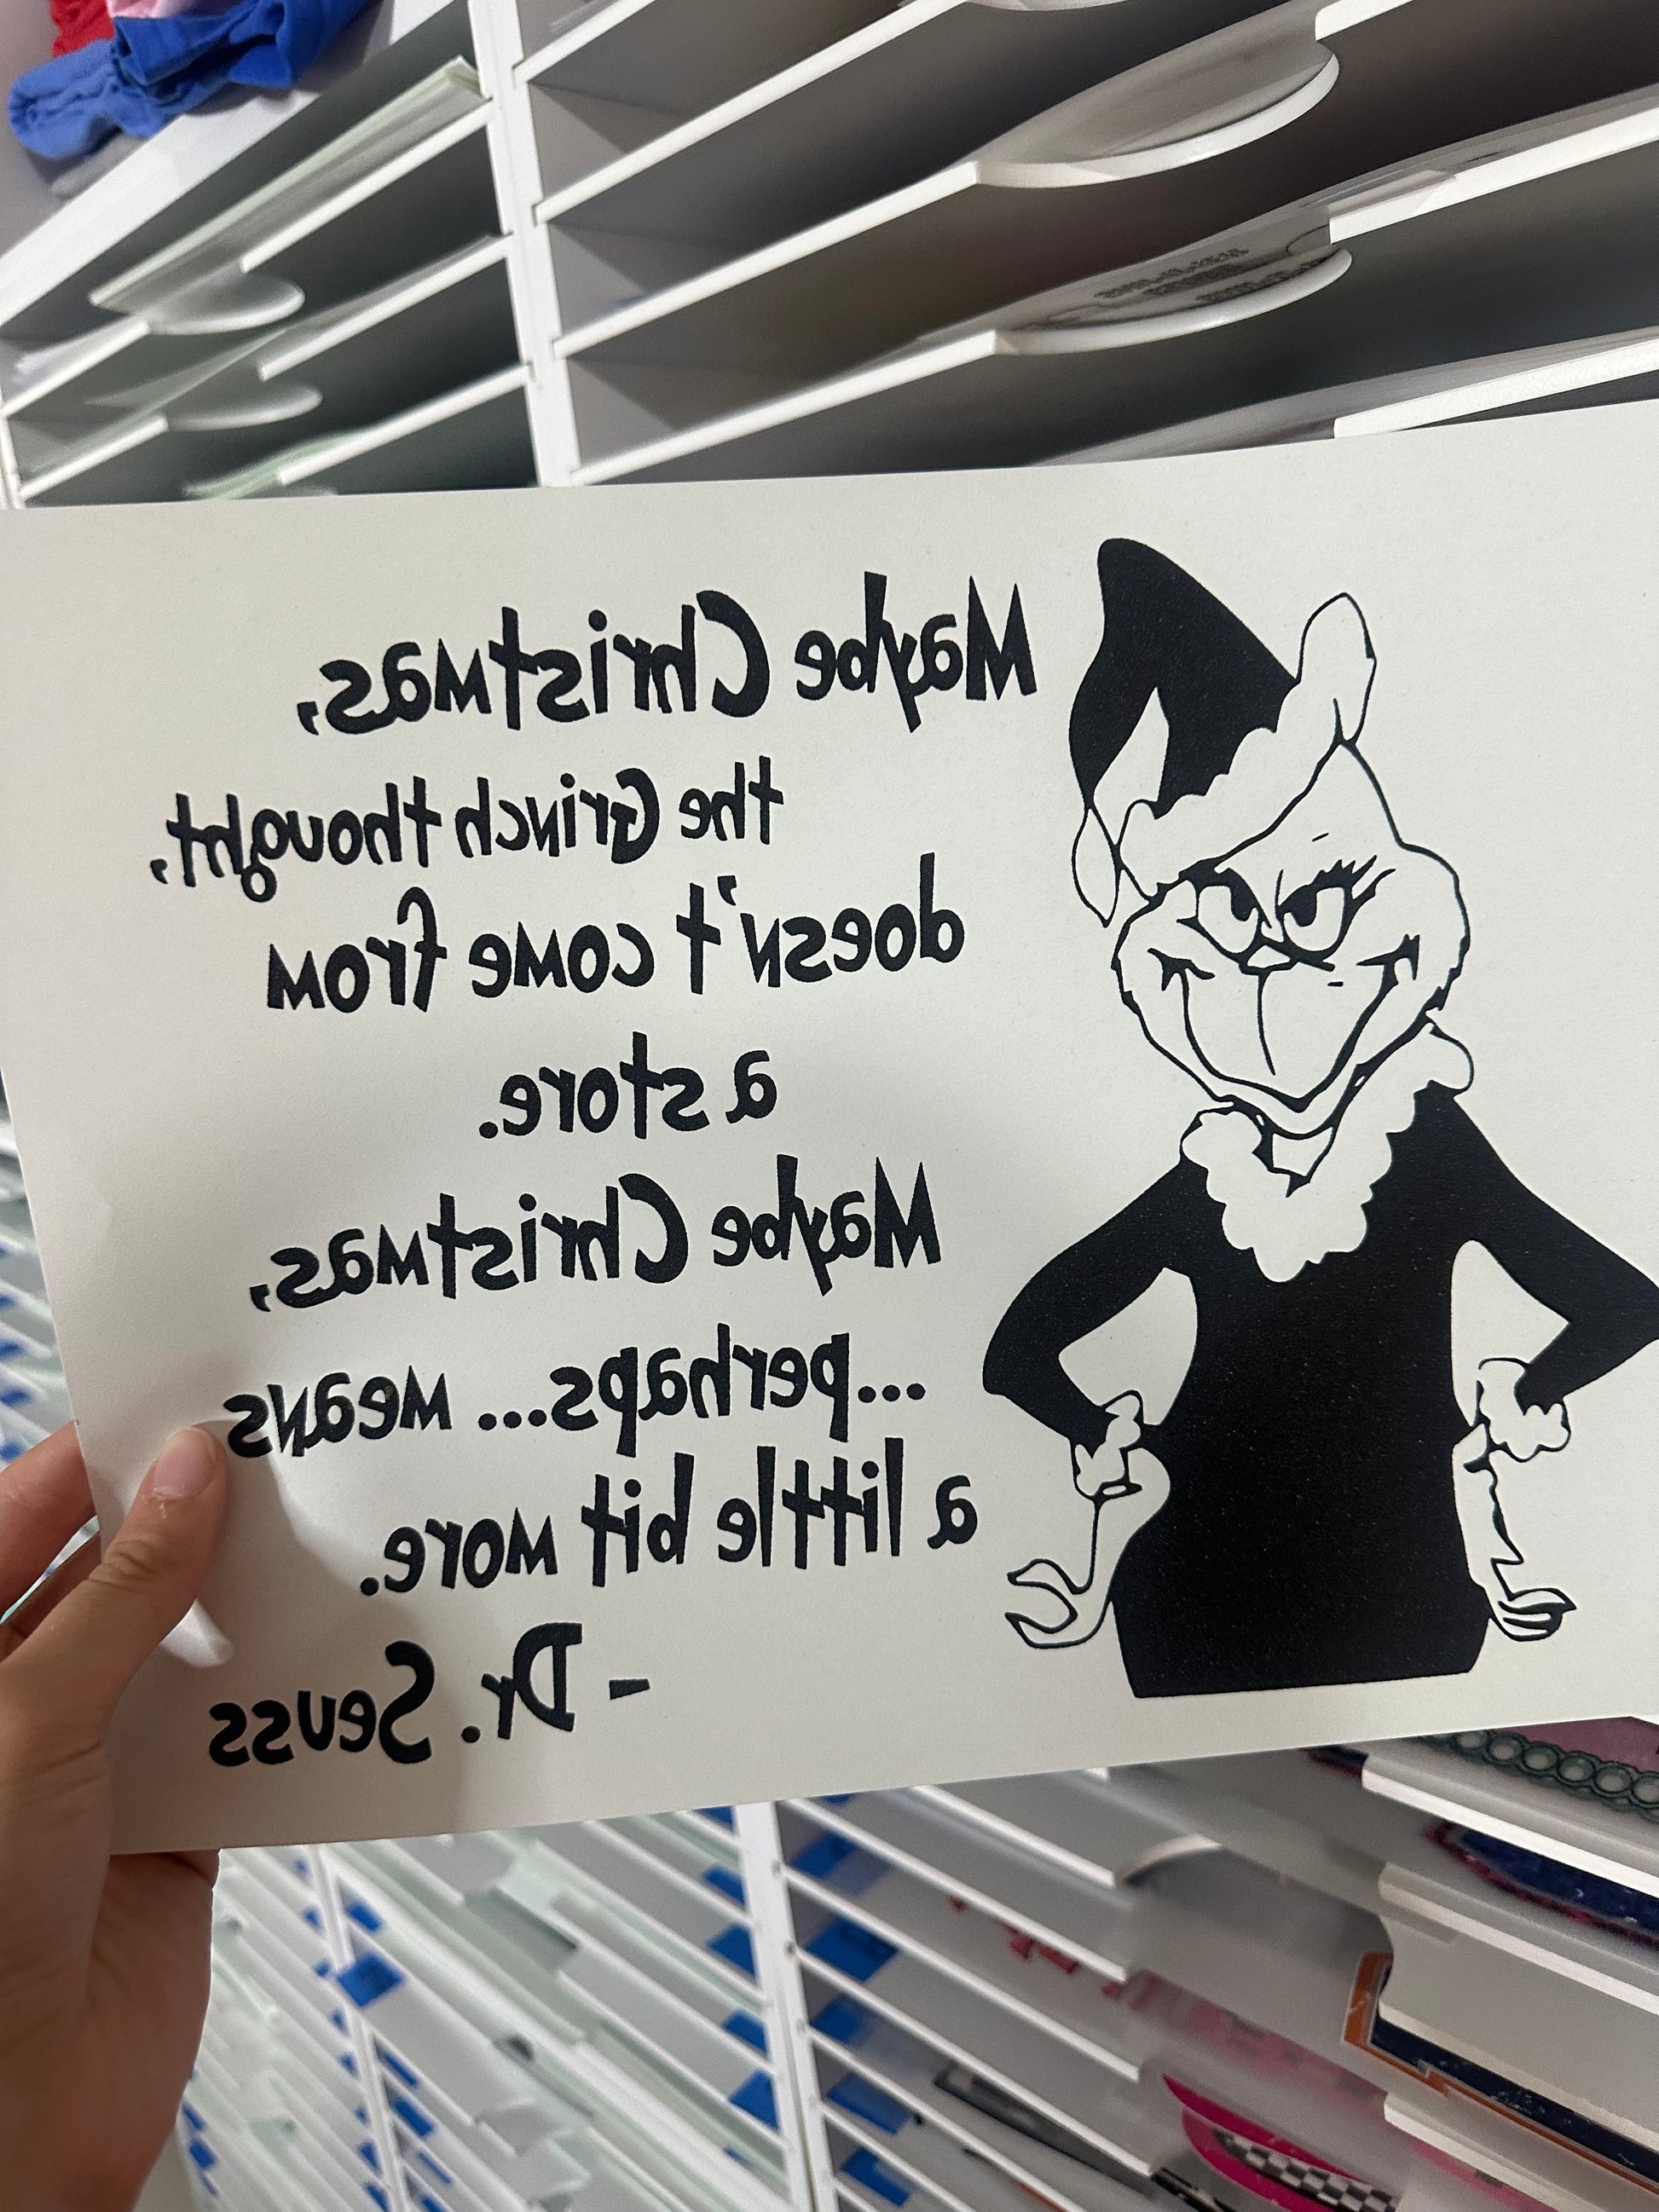 Maybe Christmas,
the Grinch thought,
doesn't come from
a store.
Maybe Christmas,
...perhaps... means
a little bit more.
- Dr. Seuss